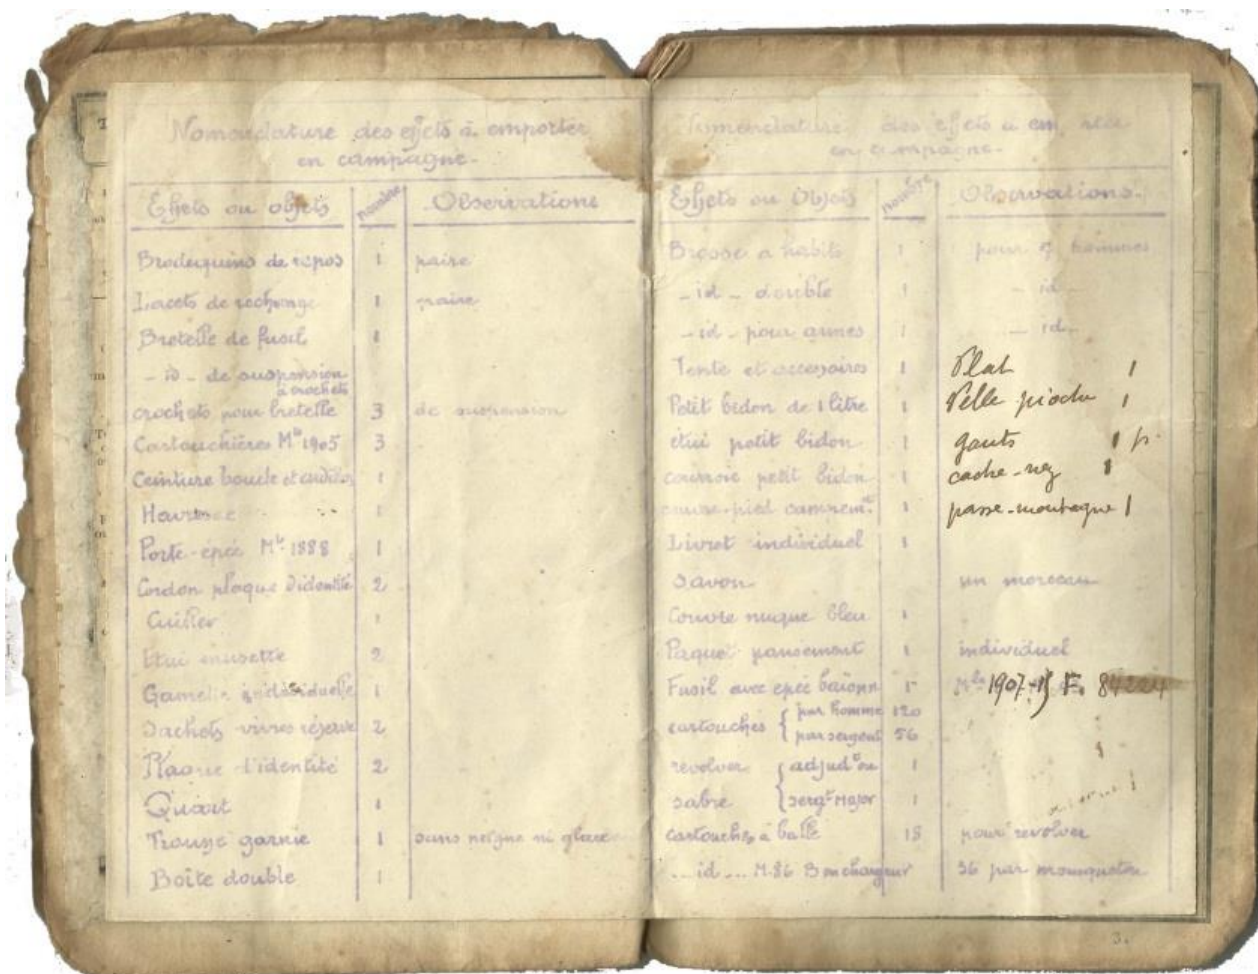 Nomenclature des effets à emporter
en campagne.
Effets ou objets nombre Observations
Brodequins de repos 1 paire
Lacets de rechange 1 paire
Bretelle de fusil 1
_ id _ de suspension
à crochets
crochets pour bretelle 3 de suspension
Cartouchières Mle 1905 3
Ceinture boucle et 1
Havresac 1
Porte-épée Mle 1888 1
Cordon plaque d'identité 2
Cuiller 1
Etui musette 2
Gamelle individuelle 1
Sachets vivres réserve 2
Plaque d'identité 2
Quart 1
Trousse garnie 1 sans peigne ni glace
Boîte double 1
Nomenclature des effets à em
en campagne.
Effets ou Objets nombre Observations.
Brosse à habits 1 pour hommes
_ id _ double 1 _ id _
_ id _ pour armes 1 _ id _
Tente et accessoires 1 Plat 1
Petit bidon de 1 litre 1 Pelle pioche 1
étui petit bidon 1 gants 1 p.
courroie petit bidon 1 cache-nez 1
couvre-pied campemt 1 passe-montagne 1
Livret individuel 1
Savon un morceau
Couvre nuque bleu 1
Paquet pansement 1 individuel
Fusil avec épée baïonn 1 Mle 1907-15 F. 84224
cartouches { par homme 120
par sergent 56
revolver { adjudt ou 1
sabre sergt Major 1
cartouches à balle 18 pour revolver
_ id _ M.86 en chargeur 36 par mousqueton
3.